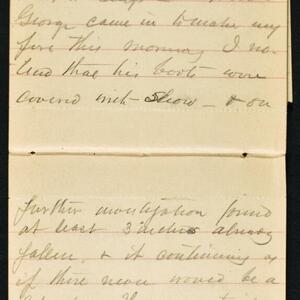 George came in to make my
fire this morning I no-
ticed that his boots were
covered with Snow - & on
further investigation found
at least 3 inches already
fallen, & it continuing as
if there never would be a